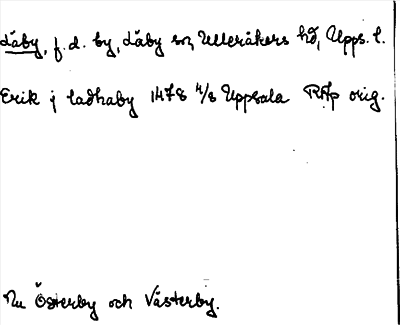 Läby, f.d. by, Läby sn, Ulleråkers hd, Upps. l.
Erik j ladhaby 1478 4/8 Uppsala RAp orig.
Nu Österby och Västerby.